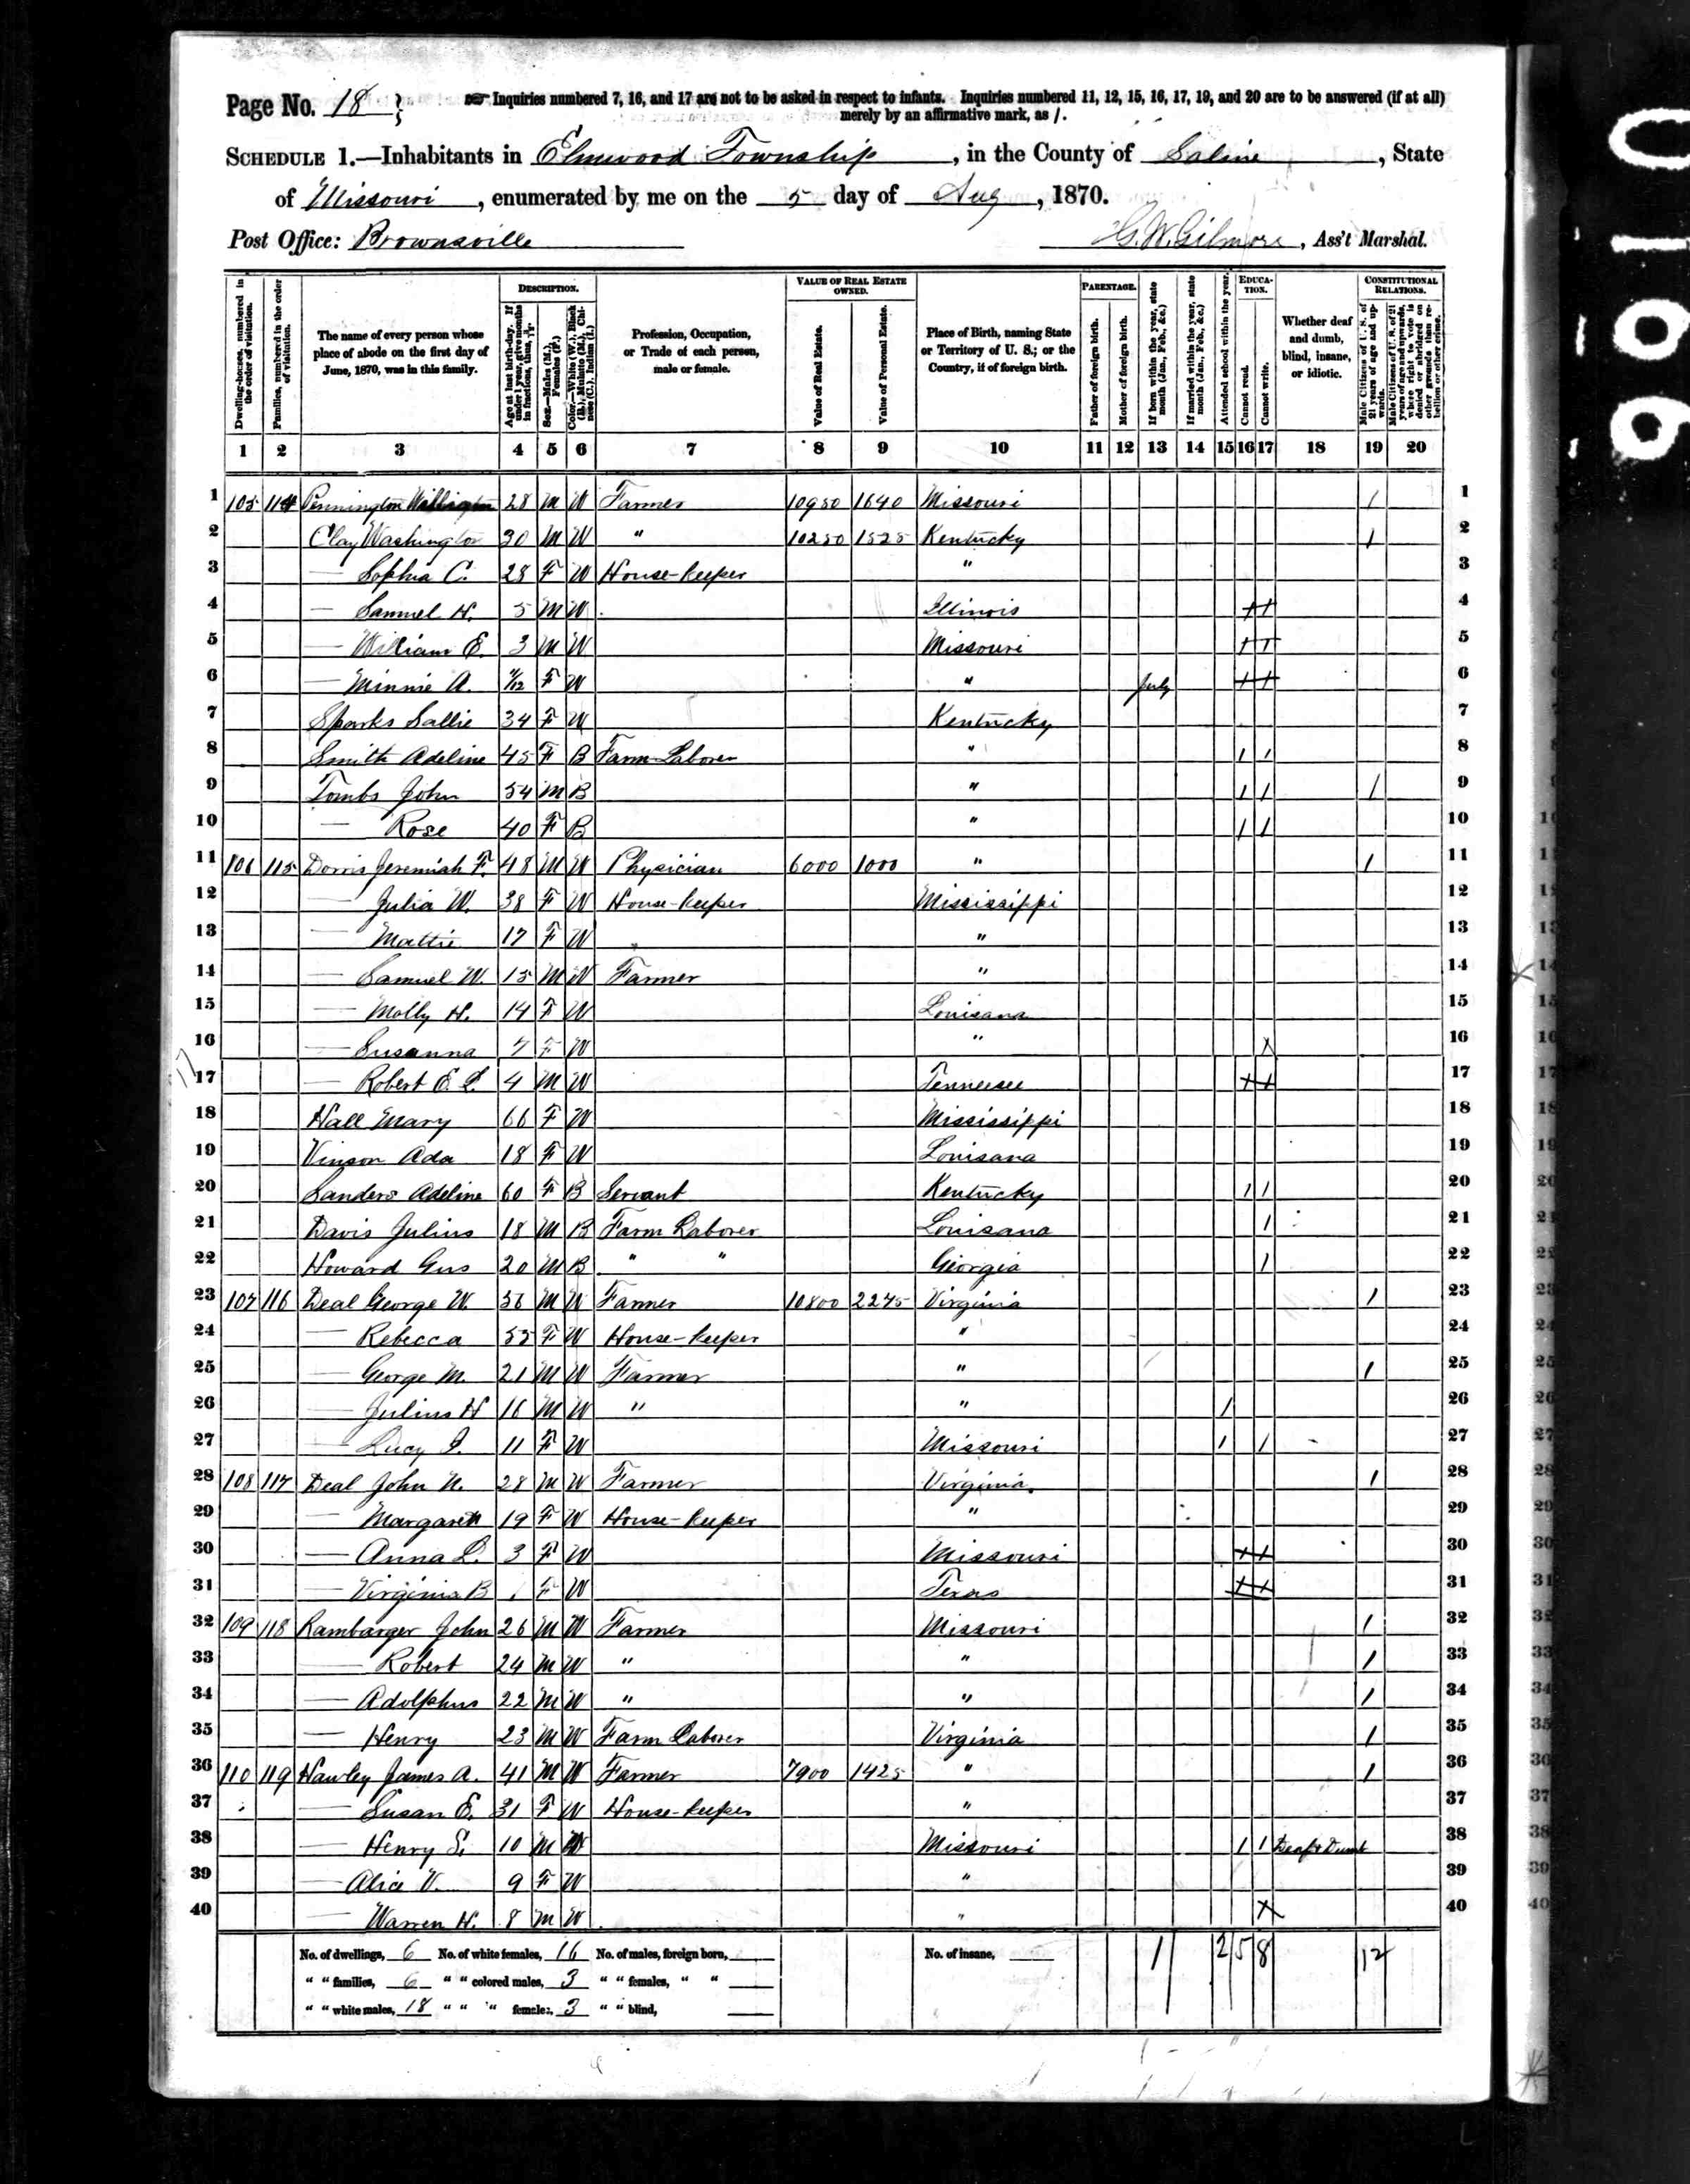 Page No. 18 } Inquiries numbered 7, 16, and 17 are not to be asked in respect to infants. Inquiries numbered 11, 12, 15, 16, 17, 19, and 20 are to be answered (if at all)
merely by an affirmative mark, as /.
SCHEDULE 1.—Inhabitants in Elmwood Township, in the County of Saline, State
of Missouri, enumerated by me on the 5 day of Aug, 1870.
Post Office: Brownsville G. W. Gilmore, Ass't Marshal.
Dwelling-houses, numbered in the order of visitation.
Families, numbered in the order of visitation.
The name of every person whose place of abode on the first day of June, 1870, was in this family.
DESCRIPTION.
Age at last birth-day. If under 1 year, give months in fractions, thus,
Sex.—Males (M.), Females (F.)
Color.—White (W.), Black (B.), Mulatto (M.), Chinese (C.), Indian (I.)
Profession, Occupation, or Trade of each person, male or female.
VALUE OF REAL ESTATE OWNED.
Value of Real Estate.
Value of Personal Estate.
Place of Birth, naming State or Territory of U. S.; or the Country, if of foreign birth.
PARENTAGE.
Father of foreign birth.
Mother of foreign birth.
If born within the year, state month (Jan., Feb., &c.)
If married within the year, state month (Jan., Feb., &c.)
Attended school within the year.
EDUCATION.
Cannot read.
Cannot write.
Whether deaf and dumb, blind, insane, or idiotic.
CONSTITUTIONAL RELATIONS.
Male Citizens of U. S. of 21 years of age and upwards.
Male Citizens of U. S. of 21 years of age and upwards, where right to vote is denied or abridged on other grounds than rebellion or other crime.
1 2 3 4 5 6 7 8 9 10 11 12 13 14 15 16 17 18 19 20
1 105 114 Pennington 28 M W Farmer 10950 1640 Missouri / 1
2 Clay Washington 30 M W " 10250 1525 Kentucky / 2
3 — Sophia C. 28 F W House-keeper " 3
4 — Samuel H. 5 M W Illinois 4
5 — William E. 3 M W Missouri 5
6 — Minnie A. 11/12 F W " July 6
7 Sparks Sallie 34 F W Kentucky 7
8 Smith Adeline 45 F B Farm Laborer " / / 8
9 Tombs John 54 M B " / / / 9
10 — Rose 40 F B " / / 10
11 106 115 Dorris Jeremiah F. 48 M W Physician 6000 1000 " / 11
12 — Julia W. 38 F W House-keeper Mississippi 12
13 — Mattie 17 F W " 13
14 — Samuel W. 15 M W Farmer " 14
15 — Molly H. 14 F W Louisana 15
16 — Susanna 7 F W " 16
17 — Robert E. L. 4 M W Tennessee 17
18 Hall Mary 66 F W Mississippi 18
19 Vinson Ada 18 F W Louisana 19
20 Sanders Adeline 60 F B Servant Kentucky / / 20
21 Davis Julius 18 M B Farm Laborer Louisana / 21
22 Howard Gus 20 M B " " Georgia / 22
23 107 116 Deal George W. 56 M W Farmer 10800 2275 Virginia / 23
24 — Rebecca 55 F W House-keeper " 24
25 — George M. 21 M W Farmer " / 25
26 — Julius H 16 M W " " / 26
27 — Lucy J. 11 F W Missouri / / 27
28 108 117 Deal John N. 28 M W Farmer Virginia. / 28
29 — Margarett 19 F W House-keeper " 29
30 — Anna L. 3 F W Missouri 30
31 — Virginia B 1 F W Texas 31
32 109 118 Rambarger John 26 M W Farmer Missouri / 32
33 — Robert 24 M W " " / 33
34 — Adolphus 22 M W " " / 34
35 — Henry 23 M W Farm Laborer Virginia / 35
36 110 119 Hawley James A. 41 M W Farmer 7900 1425 " / 36
37 — Susan E. 31 F W House-keeper " 37
38 — Henry S. 10 M W Missouri / / Deaf & Dumb 38
39 — Alice V. 9 F W " 39
40 — Warren H. 8 M W " 40
No. of dwellings, 6 No. of white females, 16 No. of males, foreign born, No. of insane, 1 2 5 8 12
" " families, 6 " " colored males, 3 " " females, " "
" " white males, 18 " " " females, 3 " " blind,